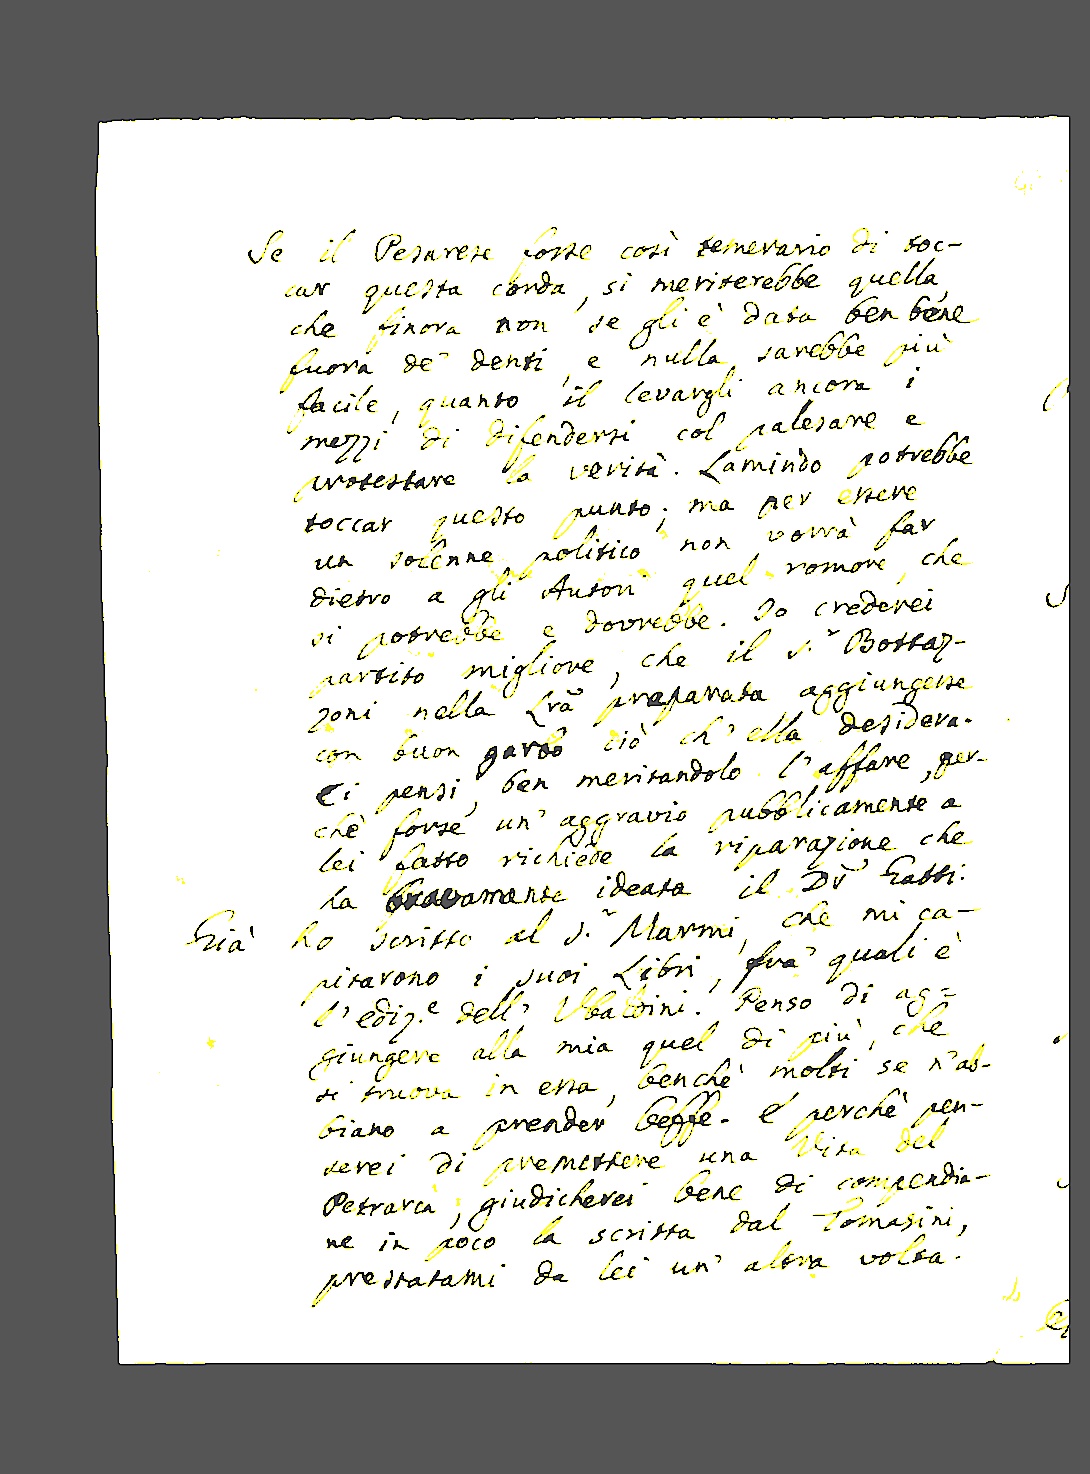 Se il Pesarese fosse così temerario di toc-
car questa corda, si meriterebbe quella,
che finora non se gli è data ben bene
fuora de' denti, e nulla sarebbe più
facile, quanto il levargli ancora i
mezzi di difendersi col palesare e
protestare la verità. Lamindo potrebbe
toccar questo punto; ma per essere
un solenne politico non vorrà far
dietro a gli Autori quel romore, che
si potrebbe e dovrebbe. Io crederei
partito migliore, che il S.r Bottaz-
zoni nella Lra preparata aggiungesse
con buon garbo ciò ch' ella desidera.
Ci pensi, ben meritandolo l'affare, per-
chè forse un' aggravio pubblicamente a
lei fatto richiede la riparazione che
ha bravamente ideata il Dr Gatti.
Già ho scritto al S.r Marmi, che mi ca-
pitarono i suoi Libri, fra' quali è
l'ediz.e dell' Ubaldini. Penso di ag-
giungere alla mia quel di più, che
si truova in essa, benchè molti se n'ab-
biano a prender beffe. E perchè pen-
serei di premettere una Vita del
Petrarca, giudicherei bene di compendia-
ne in poco la scritta dal Tomasini,
prestatami da lei un' altra volta.